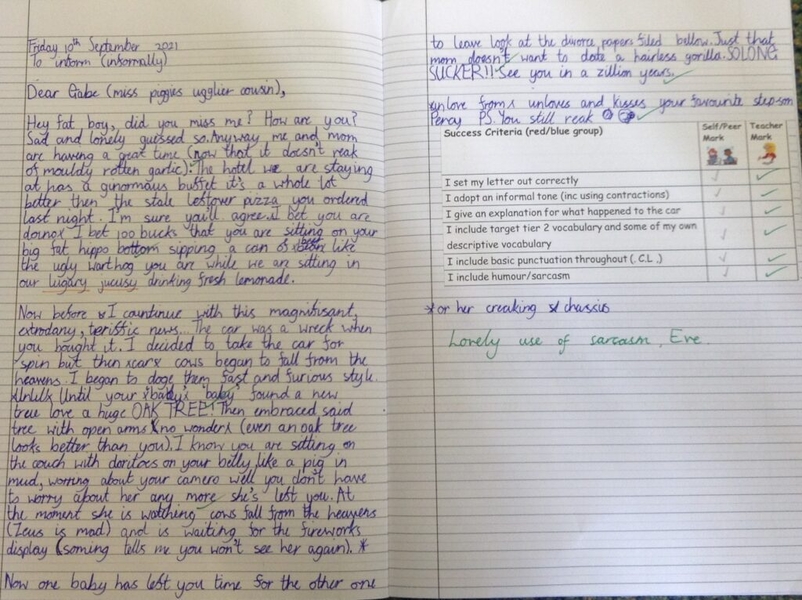 Friday 10th September 2021
To inform (informally)
Dear Gabe (miss piggies ugglier cousin),
Hey fat boy, did you miss me? How are you?
Sad and lonely guessed so. Anyway me and mom
are having a great time (now that it doesn't reak
of mouldy rotten garlic). The hotel we are staying
at has a ginormous buffet it's a whole lot
better then the stale leftover pizza you ordered
last night. I'm sure you'll agree. I bet you are
doing I bet 100 bucks that you are sitting on your
big fat hippo bottom sipping a can of like
the ugly warthog you are while we are sitting in
our lugary jucusy drinking fresh lemonade.
Now before I countinue with this magnifisant,
extrodany, teriffic news... The car was a wreck when
you bought it. I decided to take the car for
spin but then cows began to fall from the
heavens. I began to doge them fast and furious style.
Until your 'baby' found a new
true love a huge OAK TREE! Then embraced said
tree with open arms (no wonder) (even an oak tree
looks better than you). I know you are sitting on
the couch with doritoes on your belly, like a pig in
mud, worring about your camero well you don't have
to worry about her any more she's left you. At
the moment she is watching cows fall from the heavens
(Zeus is mad) and is waiting for the fireworks
display (soming tells me you won't see her again). *
Now one baby has left you time for the other one
to leave look at the divorce papers filed bellow. Just that
mom doesn't want to date a hairless gorilla. SOLONG
SUCKER!! See you in a zillion years.
unlove from unloves and kisses your favourite step-son
Percy PS. You still reak
Success Criteria (red/blue group)
Self/Peer Mark
Teacher Mark
I set my letter out correctly
I adopt an informal tone (inc using contractions)
I give an explanation for what happened to the car
I include target tier 2 vocabulary and some of my own
descriptive vocabulary
I include basic punctuation throughout (. C.L ,)
I include humour/sarcasm
* or her creaking chassis
Lovely use of sarcasm, Eve.